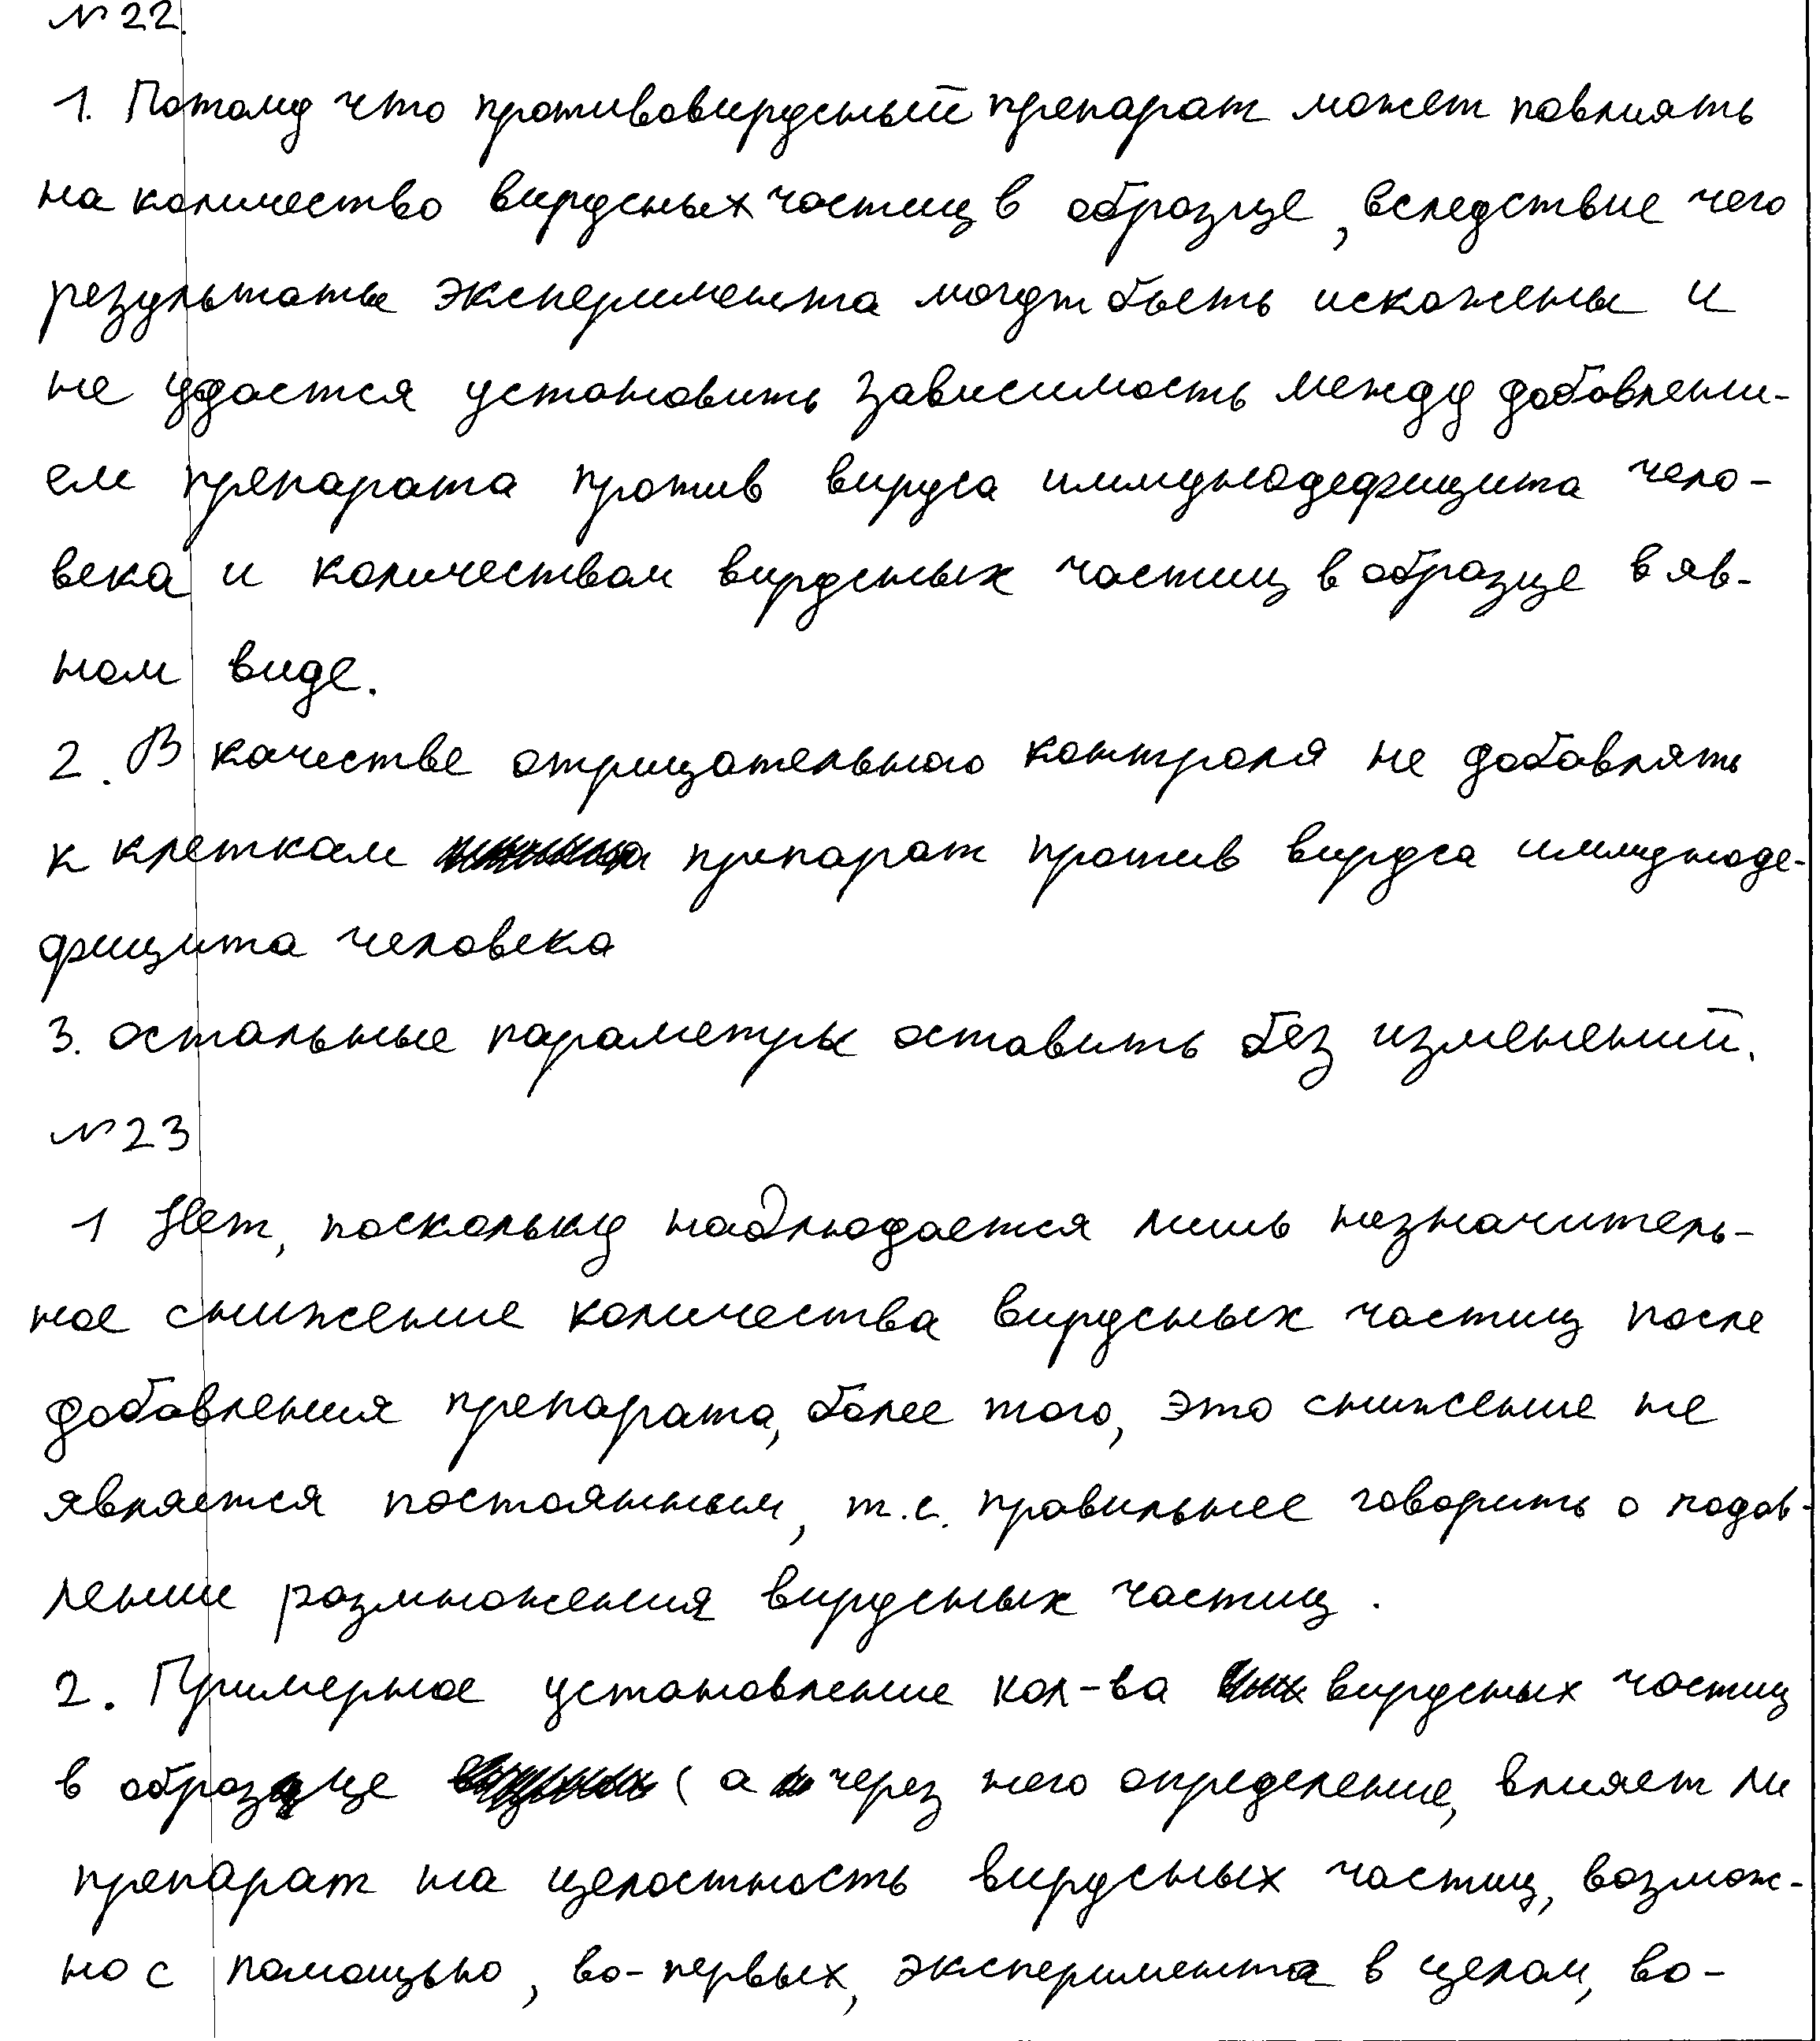 № 22.
1. Потому что противовирусный препарат может повлиять
на количество вирусных частиц в образце, вследствие чего
результаты эксперимента могут быть искажены и
не удастся установить зависимость между добавлени-
ем препарата против вируса иммунодефицита чело-
века и количеством вирусных частиц в образце в яв-
ном виде.
2. В качестве отрицательного контроля не добавлять
к клеткам препарат против вируса иммуноде-
фицита человека
3. остальные параметры оставить без изменений.
№ 23
1 Нет, поскольку наблюдается лишь незначитель-
ное снижение количества вирусных частиц после
добавления препарата, более того, это снижение не
является постоянным, т.е. правильнее говорить о подав-
лении размножения вирусных частиц.
2. Примерное установление кол-ва вирусных частиц
в образце (а через него определение, влияет ли
препарат на целостность вирусных частиц, возмож-
но с помощью, во-первых, эксперимента в целом, во-